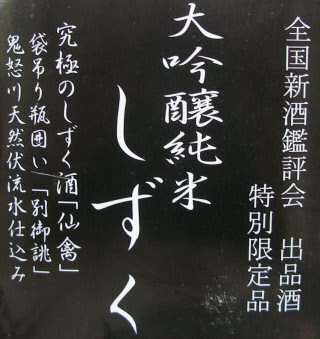 全国新酒鑑評会 出品酒
特別限定品
大吟醸純米
しずく
究極のしずく酒「仙禽」
袋吊り瓶囲い「別御誂」
鬼怒川天然伏流水仕込み